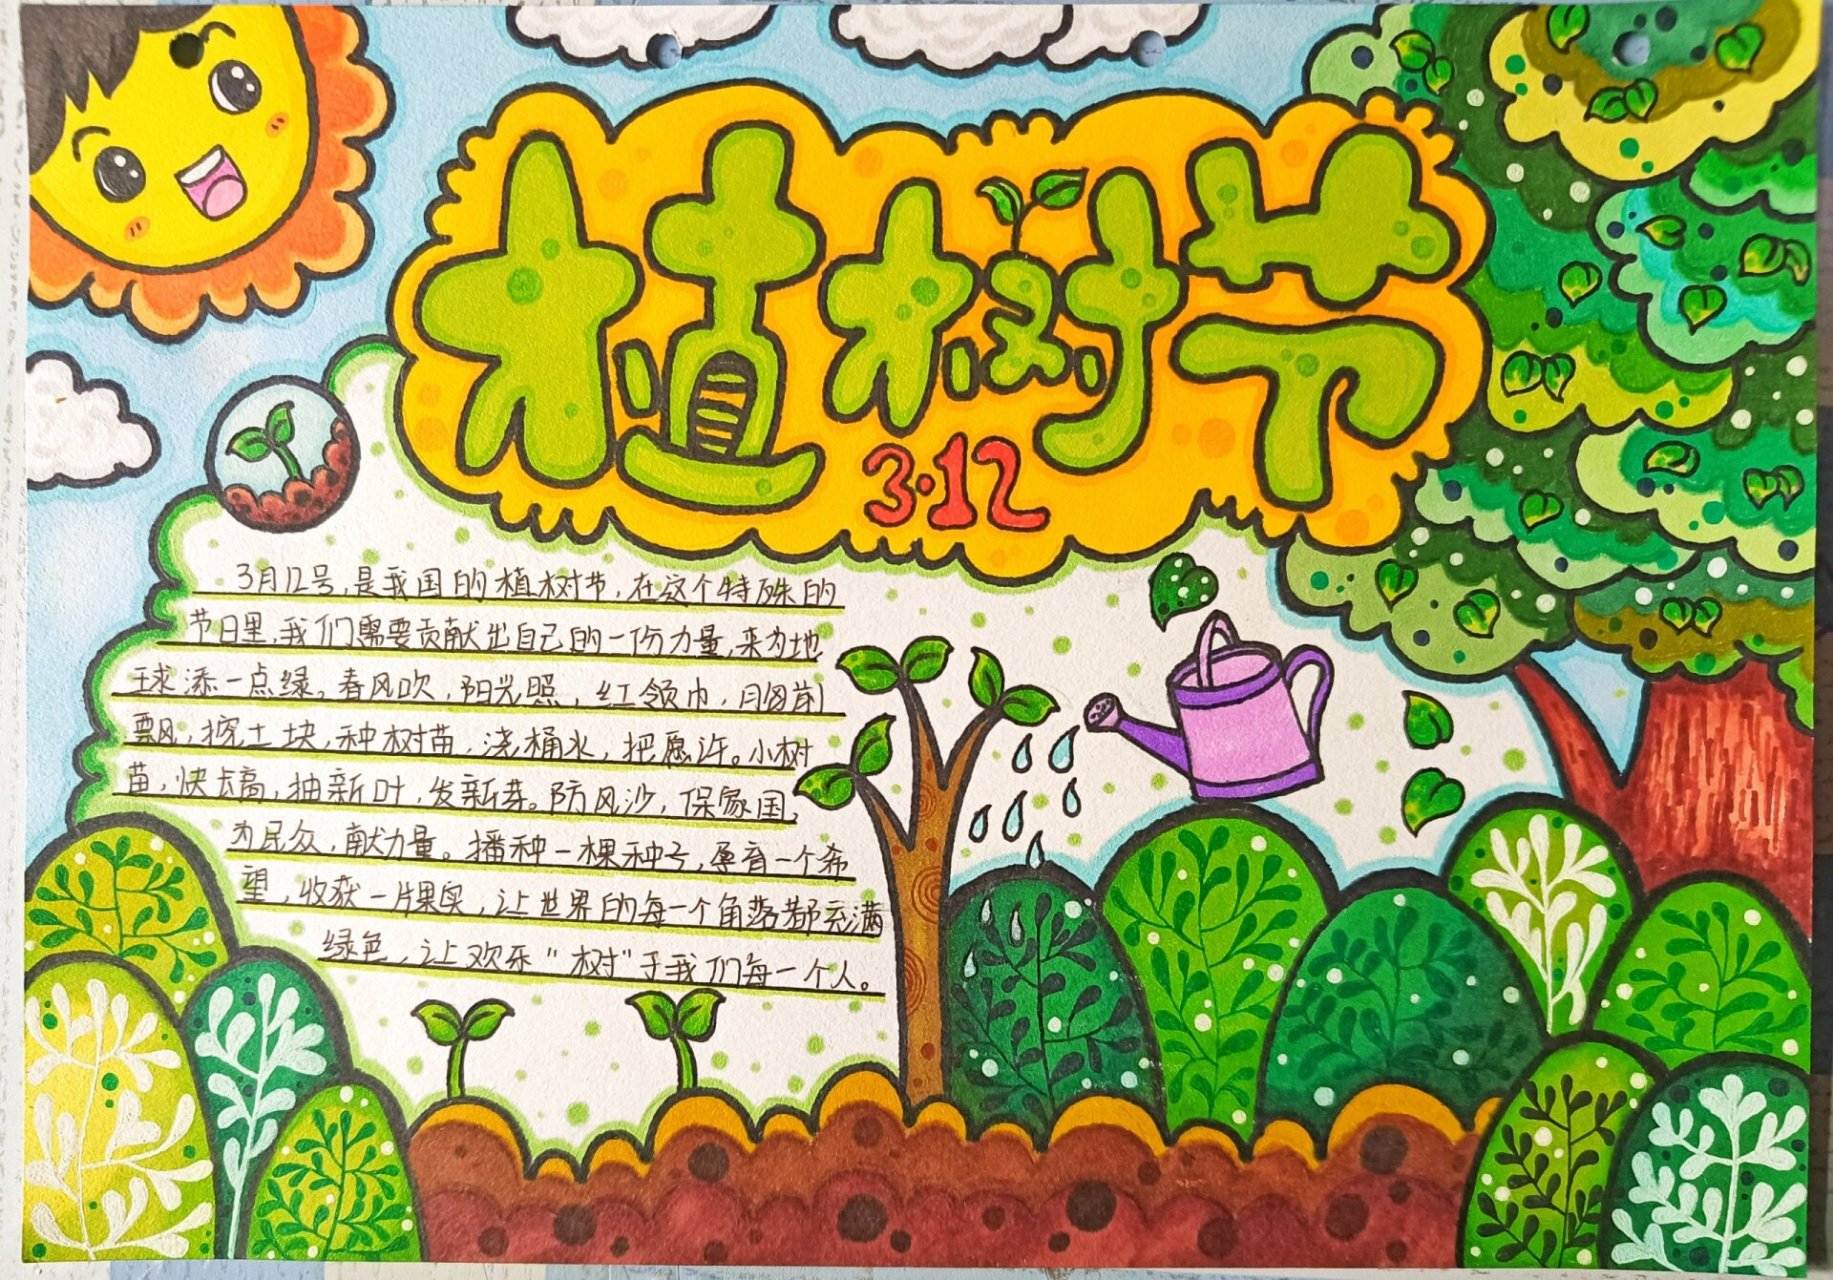 植树节
3·12
3月12号,是我国的植树节,在这个特殊的
节日里,我们需要贡献出自己的一份力量,来为地
球添一点绿。春风吹,阳光照,红领巾,胸前
飘,挖土块,种树苗,浇桶水,把愿许。小树
苗,快长高,抽新叶,发新芽。防风沙,保家国,
为民众,献力量。播种一棵种子,孕育一个希
望,收获一片果实,让世界的每一个角落都充满
绿色,让欢乐“树”于我们每一个人。